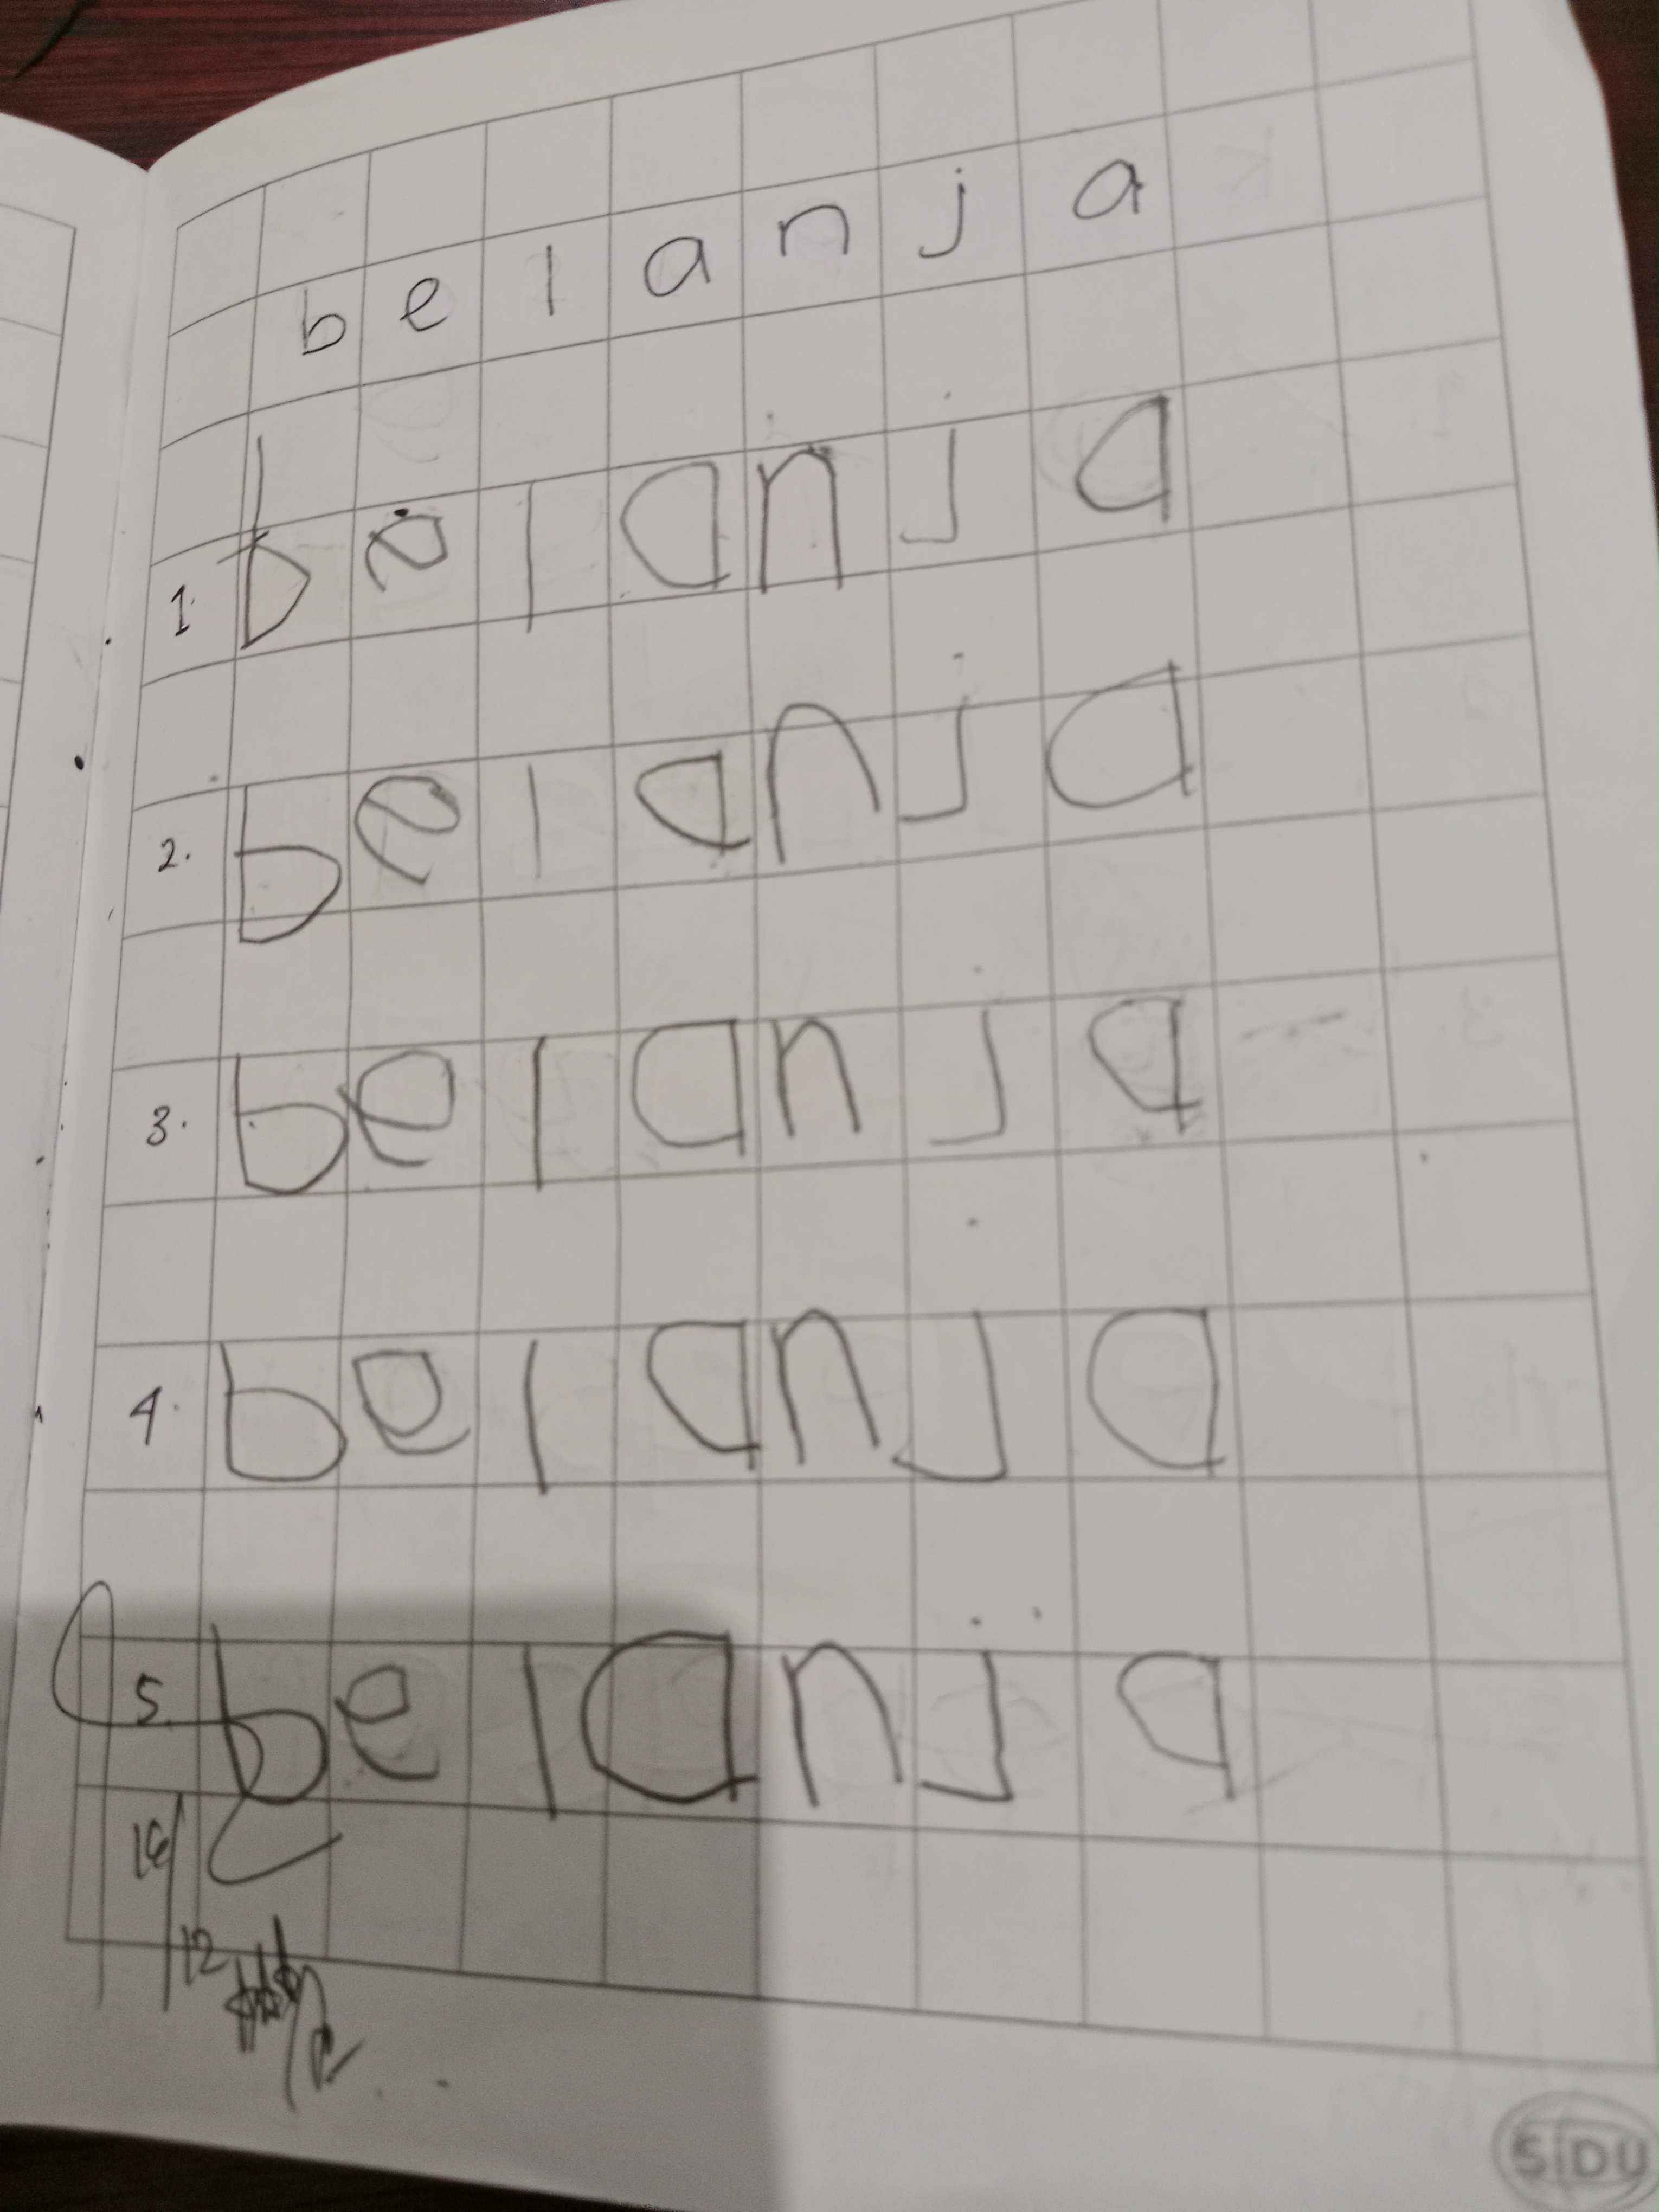 b e l a n j a
1. b e l a n j a
2. b e l a n j a
3. b e l a n j a
4. b e l a n j a
5. b e l a n j a
12
SiDU